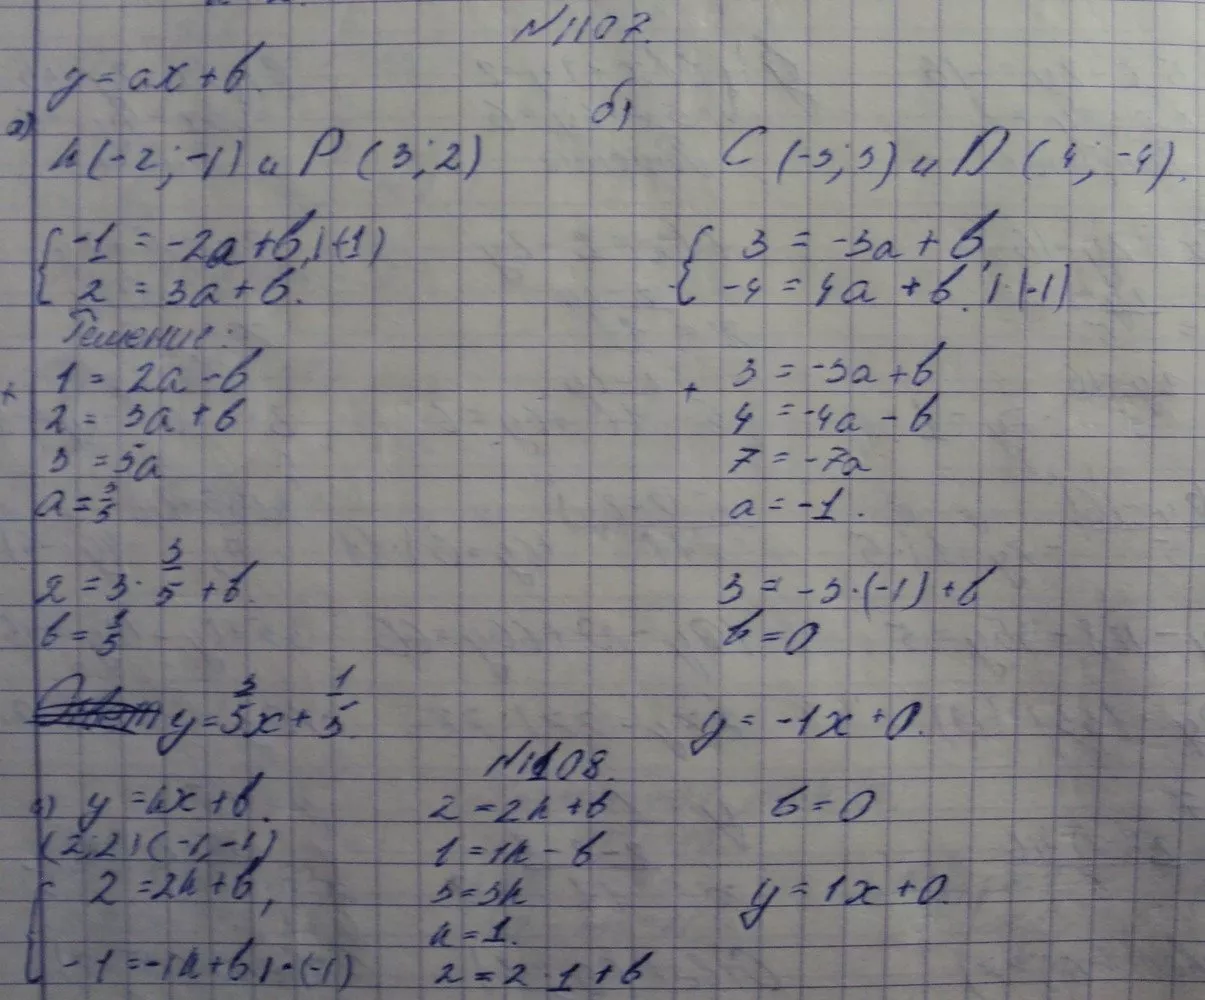 N1107.
y = ax + b.
а)
K(-2; -1) и P (3; 2)
{ -1 = -2a + b, | (+1)
2 = 3a + b.
Решение:
+ 1 = 2a - b
2 = 3a + b
3 = 5a
a = 3/5
2 = 3 · 3/5 + b.
b = 1/5
y = 3/5 x + 1/5.
б)
C (-3; 3) и D (4; -4).
{ 3 = -3a + b,
-4 = 4a + b. | · (-1)
+ 3 = -3a + b
4 = -4a - b
7 = -7a
a = -1.
3 = -3 · (-1) + b
b = 0
y = -1x + 0.
N1108.
y = kx + b.
(2; 2) (-1; -1)
{ 2 = 2k + b,
-1 = -1k + b | · (-1)
2 = 2k + b
1 = 1k - b
3 = 3k
k = 1.
2 = 2 · 1 + b
b = 0
y = 1x + 0.